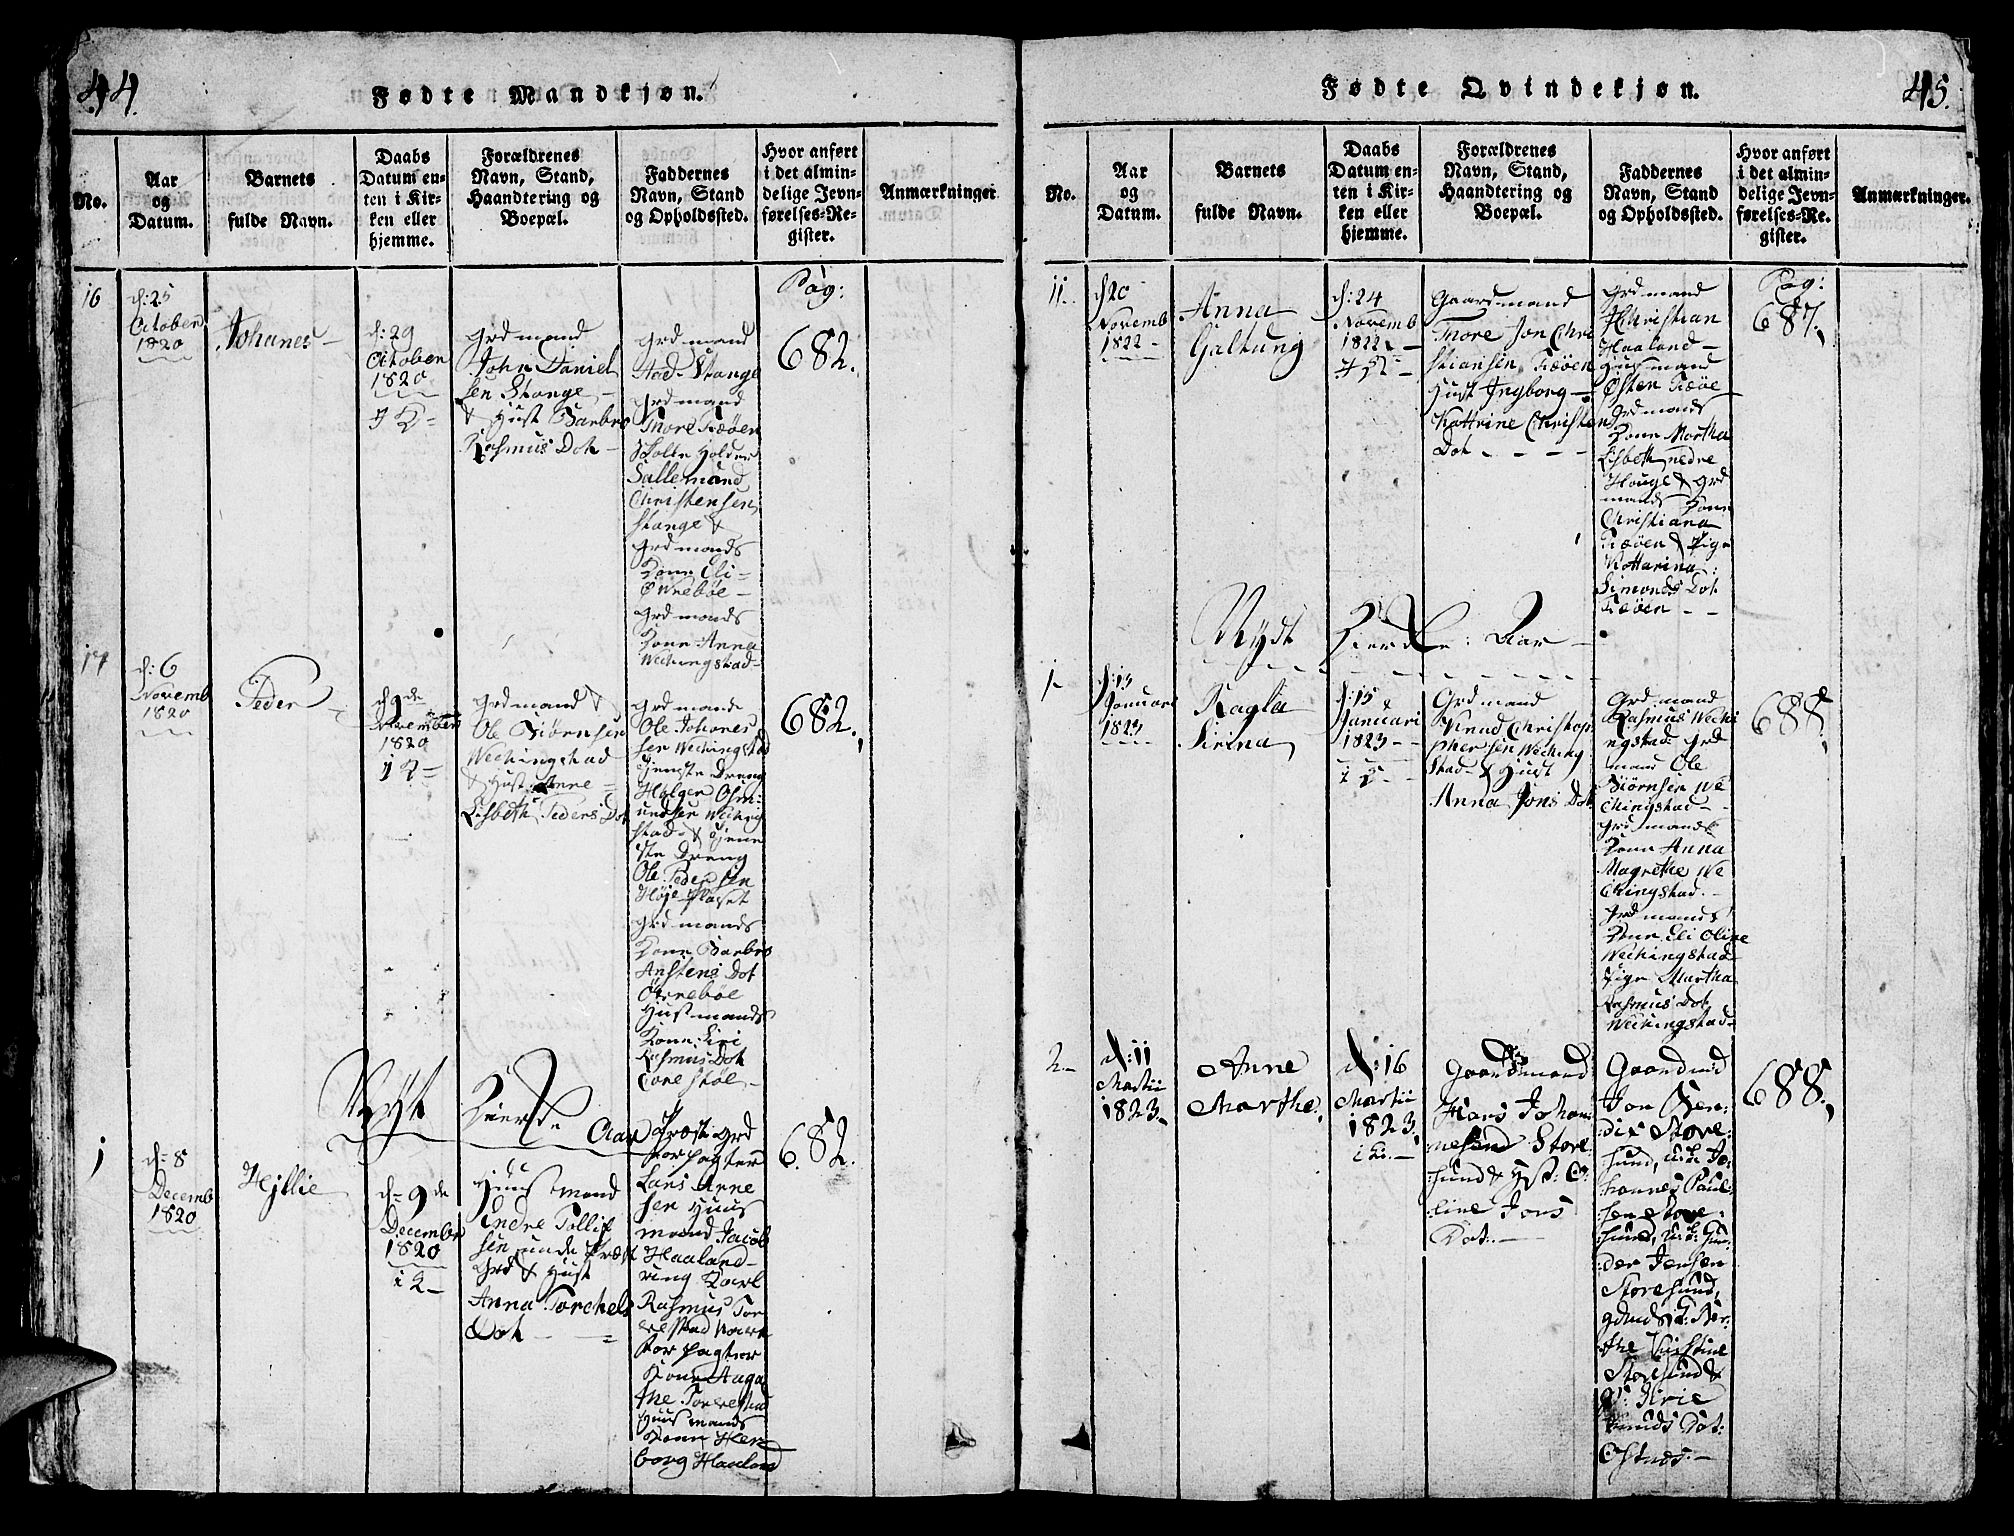 44.
Fødte Mandkjøn.
No.
Aar
og
Datum.
Barnets
fulde Navn.
Daabs
Datum en-
ten i Kir-
ken eller
hjemme.
Forældrenes
Navn, Stand,
Haandtering og
Boepæl.
Faddernes
Navn, Stand
og Opholdssted.
Hvor anført
i det almin-
delige Jevn-
førelses-Re-
gister.
Anmærkninger
16
d: 25
October
1820
Johanes
d: 29
October
1820
Grdmand
John Daniel
sen Stange
& Hust Barbro
Rasmus Dot
Grdmand
Aad Stange
Grdmand
Thore Røøen
Skolle Holder
Sallemand
Christensen
Stange &
Grdmands
Kone Eli
Ørnebøe
Grdmands
Kone Anna
Wechingstad
Pag:
682.
17
d: 6
Novemb
1820
Peder
d 9de
November
1820
Grdmand
Ole Biørnsen
Wechingstad
& Hust: Anne
Lisbeth Peders Dot
Grdmand
Ole Johanes
sen Wechingstad
tjeneste Dreng
Holger Osm
undsen Weching
stad & tjene
ste Dreng
Ole Pedersen
Høje Plaset
Grdmands
Kone Barbro
Anstens Dot
Örnebøe
Husmands
Kone Siri
Rasmus Dot
Torestøl
682.
Nyt Kierke Aar
1
d: 8
Decemb
1820
Hellie
d 9de
December
1820
Huusmand
Endre Tollif
sen unde Præst
Grd & Hust
Anna Torchels
Dot
Præste Grd
Forpagter
Lars Anne
sen Huus
mand Jacob
Haaland
ring Karl
Rasmus Tor
vestad
Forpagter
Kone Aaga
the Torvestad
Huusmands
Kone Her
borg Haaland
682.
45.
Fødte Qvindekjøn.
No.
Aar
og
Datum.
Barnets
fulde Navn.
Daabs
Datum en-
ten i Kir-
ken eller
hjemme.
Forældrenes
Navn, Stand,
Haandtering og
Boepæl.
Faddernes
Navn, Stand
og Opholdssted.
Hvor anført
i det almin-
delige Jevn-
førelses-Re-
gister.
Anmærkninger.
11
d 20
Novemb
1822
Anna
Galtung
d: 24
Novemb
1822
Gaardmand
Thore Jon Chri
stiansen Røøen
Hust Ingborg
Kattrine Christen
Dot
Grdmand
Christian
Haaland
Husmand
Østen Røøe
Grdmands
Kone Martha
Lisbeth nedre
Houge & Grd
mands Kone
Christiana
Røøen & Pige
Kattarina
Simonds Dot
Røøen
Pag:
687.
Nydt Kierke Aar
1
d: 13
Januari
1823
Ragla
Sirina
d: 15
Januari
1823
Grdmand
Knud Christop
phersen Weching
stad & Hust
Anna Jons Dot
Grdmand
Rasmus Wechi
ngstad Grd
mand Ole
Biørnsen We
chingstad
Grdmands
Kone Anna
Magrethe We
chingstad
Grdmands
Kone Eli Oline
Wechingstad
Pige Martha
Rasmus Dot
Wechingstad
688.
2
d: 11
Martii
1823
Anne
Marthe
d: 16
Martii
1823
Gaardmand
Hans Johan
nesen Store
sund & Hst: O
line Jons
Dot:
Gaardmd
Jon Ben
dix Store
sund, Jo
hannes Paul
sen Store
sund, Gun
der Jensen
Storesund,
Ber
the Kirstine
Storesund &
P: Sirie
Knuds Dot:
Ostnæs
688.